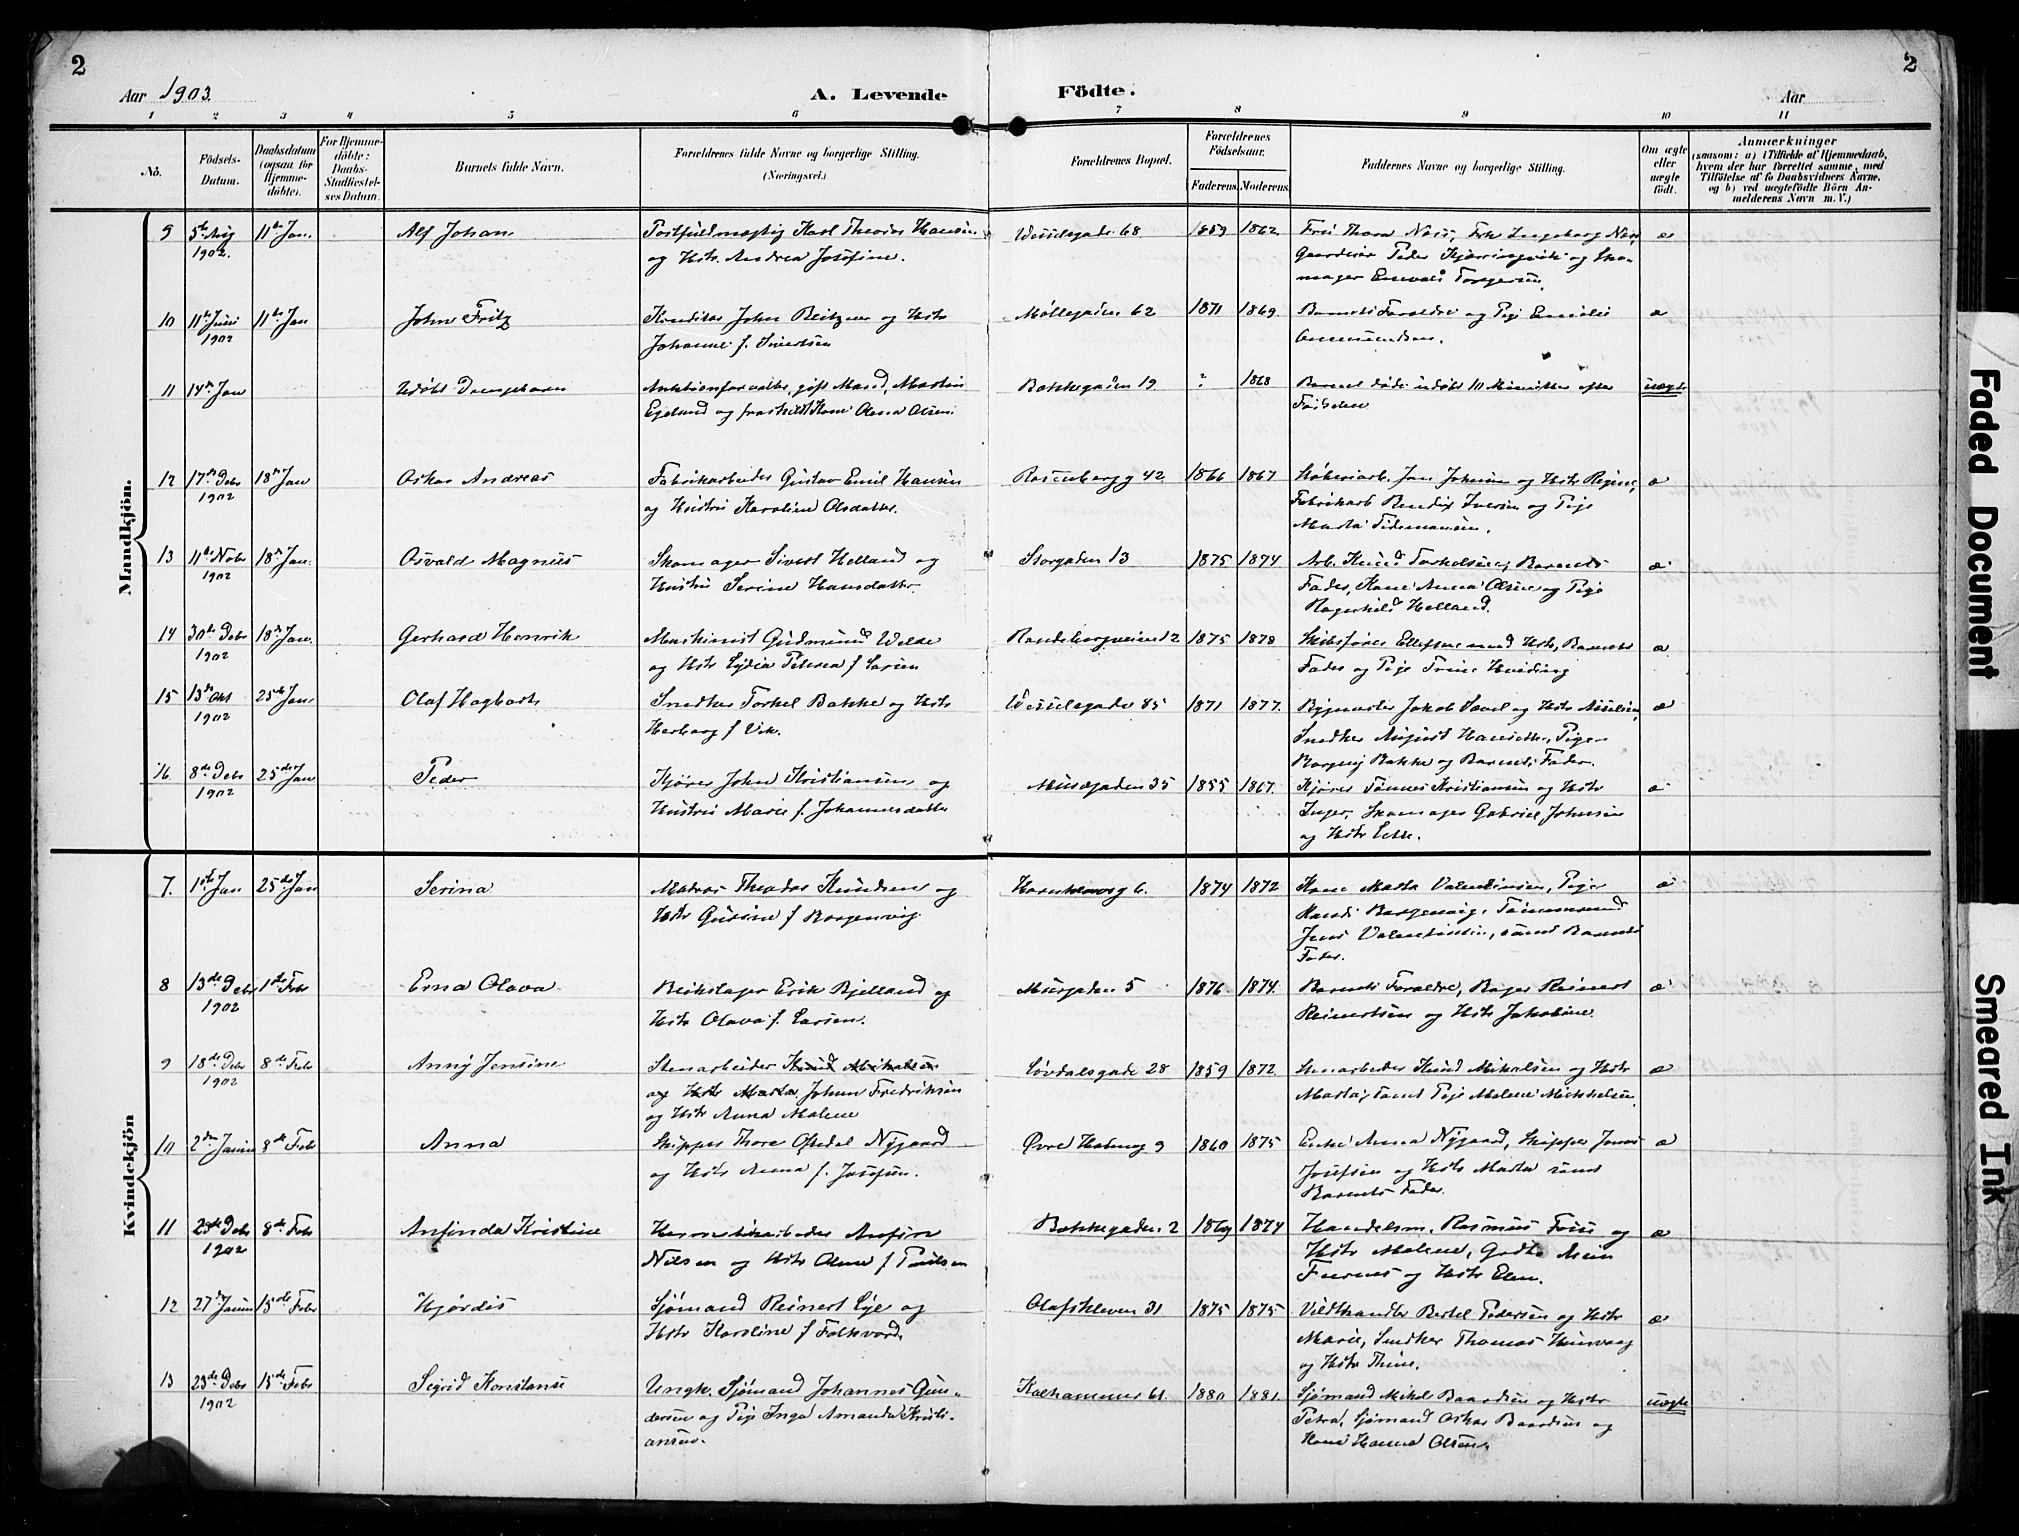 2
2
Aar 1903.
A. Levende
Födte.
Aar
1 2 3 4 5 6 7 8 9 10 11
No.
Födsels-
Datum.
Daabsdatum
(ogsaa for
Hjemme-
döbte).
For Hjemme-
döbte:
Daabs-
Stadfæstel-
ses Datum.
Barnets fulde Navn.
Forældrenes fulde Navne og borgerlige Stilling.
(Næringsvei.)
Forældrenes Bopæl.
Forældrenes
Födselsaar.
Faderens. Moderens.
Faddernes Navne og borgerlige Stilling.
Om ægte
eller
uægte
födt.
Anmærkninger
(saasom: a) i Tilfælde af Hjemmedaab,
hvem der har forrettet samme, med
Tilföielse af to Daabsvidners Navne,
og b) ved uægtefödte Börn An-
melderens Navn m. V.)
Mandkjön.
9 5te Aug 11te Jan. Alf Johan Postfuldmægtig Karl Theodor Hansen Wesselsgade 68 1859 1862 æ
1902. og Hstr. Andrea Josefine.
10 11te Juni 11te Jan John Fritz Konditor John Beitzer og Hstr Møllegaden 62 1871 1869 Barnets Forældre og Pige Emilie æ
1902 Johanne f. Sivertsen
11 14de Jan Udøbt Drengebarn Bakkegaden 19 ? 1868 Barnet døde udøbt 10 Minutter efter uægte
Egeland og fraskilt Kone Anna Olsen Fødselen
12 17de Debr 18de Jan Oskar Andreas Fabrikarbeider Gustav Emil Hansen Rosenbergg 42 1866 1867 æ
1902 og Hustru Karoline Olsdatter. Fabrikarb. Bendix Iversen og Pige
Marta Tidemansen.
13 11te Nobr 18de Jan. Osvald Magnus Skomager Sivert Helland og Storgaden 13 1875 1874 Arb. Knud Torkelsen, Barnets æ
1902 Hustru Serine Hansdatter. Fader, Kone Anna Olsen og Pige
Ragnhild Helland.
14 30te Debr 18de Jan. Gerhard Henrik Maskinist Gudmund Welde 1875 1878 Skibsfører Ellefsen med Hstr, Barnets æ
1902 og Hstr Lydia Petrea f Larsen Fader og Pige Trine
15 13de Okt 25de Jan. Olaf Hagbart Snedker Torkel Bakke og Hstr Wesselsgade 85 1871 1877. Bygmester Jakob æ
1902 Herborg f Vik. Snedker August Pige
Borghy Bakke og Barnets Fader.
16. 8de Debr 25de Jan Peder Kjører John Kristiansen og Musegaden 35 1855 1867. Kjører Tønnes Kristiansen og Hstr æ
1902 Hustru Marie f. Johannesdatter Inger, Skomager Gabriel Johnsen
og Hstr
Kvindekjön
7. 1ste Jan 25de Jan Serina Matros Theodor Knudsen og 6. 1874 1872 Kone Marta Valentinsen, Pige æ
Hstr Gurine f Borgenvig. Randi Borgenvig, Tømmermand
Jens Valentinsen, samt Barnets
Fader.
8 13de Debr 1ste Febr Erna Olava Erik Bjelland og Musegaden 5 1876 1874. Barnets Forældre, Bager Reinert æ
1902 Hstr Olava f. Larsen. Reinertsen og Hstr Jakobine.
9 18de Debr 8de Febr Anny Jensine Stenarbeider Knud Mikalsen Løvdalsgade 28 1859 1872. Stenarbeider Knud Mikalsen og Hstr æ
1902 og Hstr Marta Johan Fredriksen Marta, samt Pige Malene Mikkelsen.
og Hstr Anna Malene
10 2den Januar 8de Febr Anna Skipper Thore Oftedal Nygaard Øvre 9 1860 1875 Enke Anna Nygaard, Skipper Jonas æ
og Hstr Anna f. Josefsen. Josefsen og Hstr Marta samt
Barnets Fader.
11 23de Debr 8de Febr Anfinda Kristine Hermetikarbeider Anfin Bakkegaden 2 1869 1874 Handelsm. Rasmus Foss og æ
1902 Nilsen og Hstr Olene f Paulsen Hstr Malene,
og Hstr Elen.
12 27de Januar 15de Febr Hjørdis Sjømand Reinert Eje og Olafskleven 31 1875 1875 Vildthandler Bertel Pedersen og Hstr æ
Hstr Karoline f Folkvord. Marie, Snedker Thomas
og Hstr Thine.
13 23de Debr 15de Febr Sigrid Konstanse Ungk. Sjømand Johannes Gun- Kalhammer 61. 1880 1881. Sjømand Mikal Baardsen og Hstr uægte
1902 dersen og Pige Inga Amanda Kristi- Petra, Sjømand Oskar Baardsen og
ansen. Kone Hanna Olsen.
Faded Document
Smeared Ink